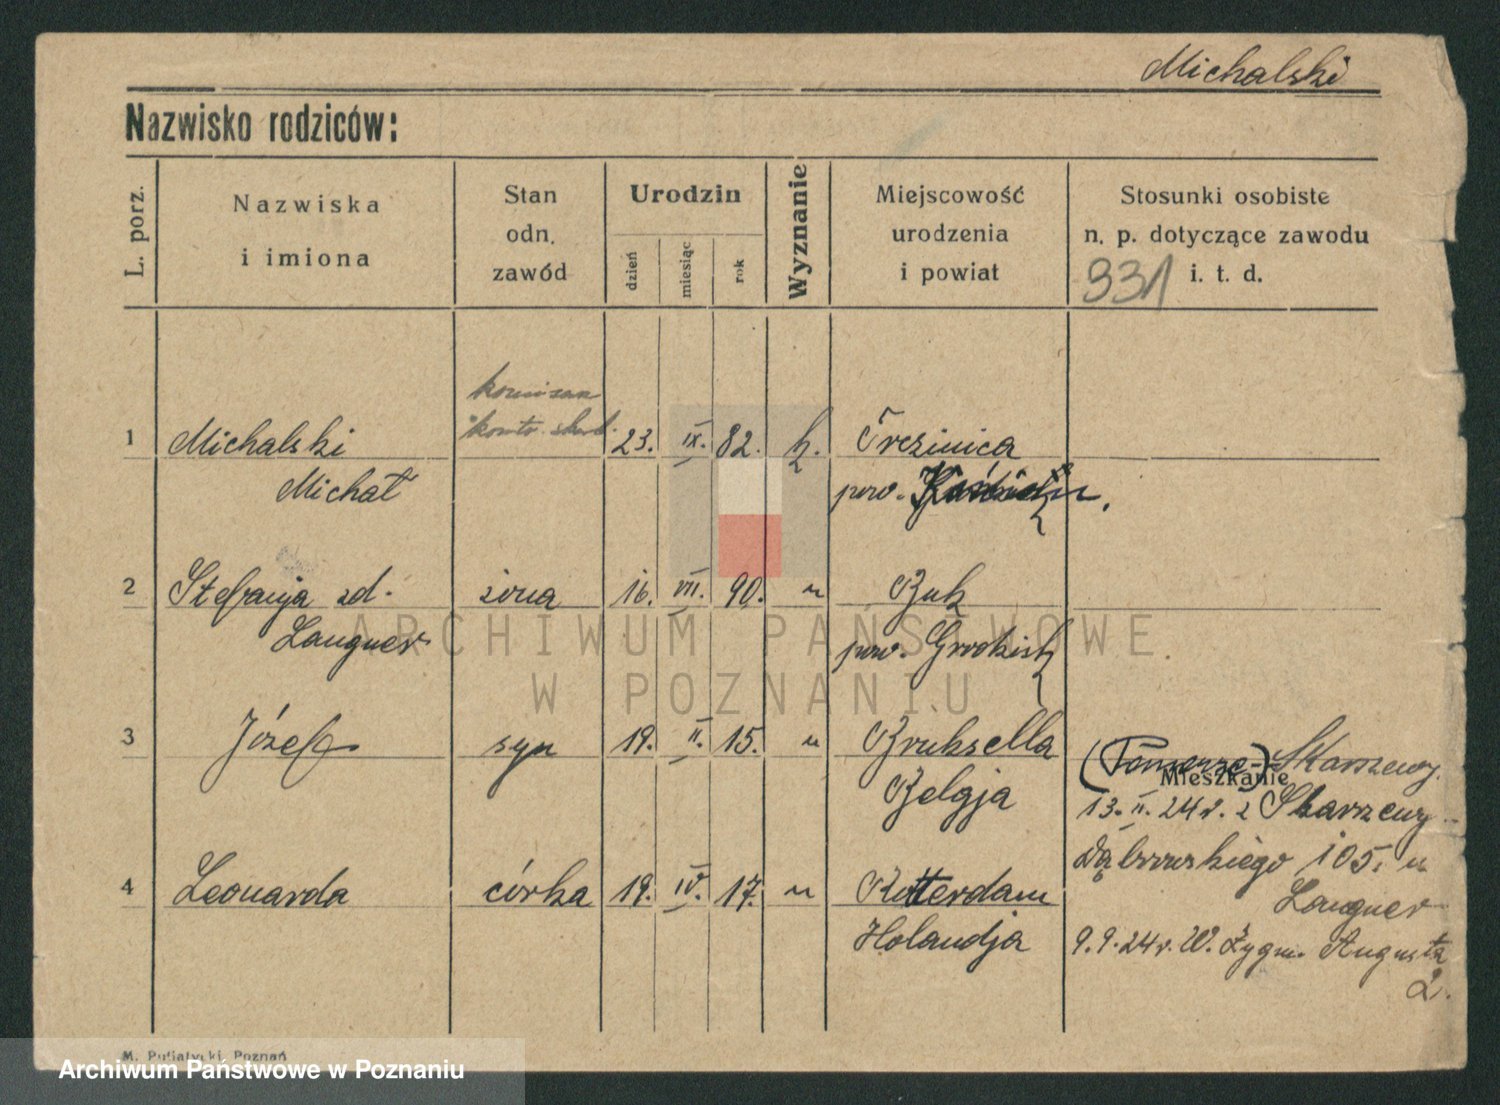 Michalski
Nazwisko rodziców:
L. porz.
Nazwiska
i imiona
Stan
odn.
zawód
Urodzin
dzień
miesiąc
rok
Wyznanie
Miejscowość
urodzenia
i powiat
Stosunki osobiste
n. p. dotyczące zawodu
i. t. d.
931
komisarz
kontr. skarb.
1 Michalski 23. IX. 82. k. Trezinica
Michał pow.
2 Stefanja zd. żona 16. VII. 90. " Buk
Langner pow. Grodzisk
3 Józef syn 19. II. 15. " Bruksella
Belgja
(Pomorze-) Skarszewy
Mieszkanie
13. II. 24 r. z Skarszewy
Dąbrowskiego 105. u
Langner
4 Leonarda córka 19. IV. 17. " Rotterdam
Holandja
9.9.24 r. W. Zygm. Augusta
2.
ARCHIWUM PAŃSTWOWE
W POZNANIU
M. Putiatycki, Poznań
Archiwum Państwowe w Poznaniu